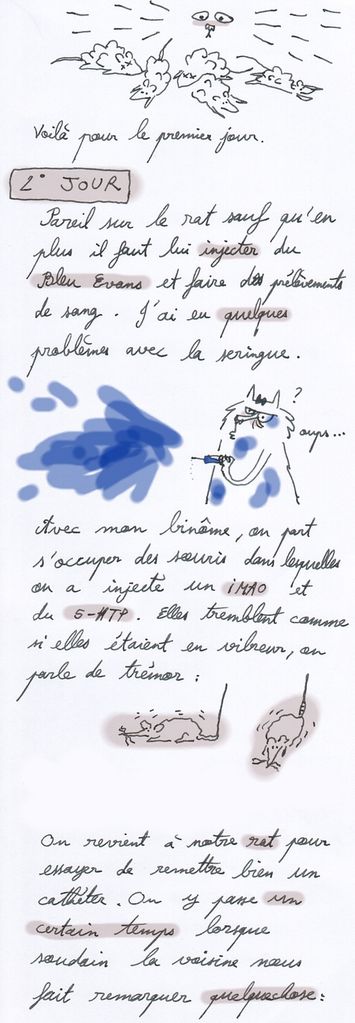 Voilà pour le premier jour.
2° JOUR
Pareil sur le rat sauf qu'en
plus il faut lui injecter du
Bleu Evans et faire des prélèvements
de sang. J'ai eu quelques
problèmes avec la seringue.
?
oups...
Avec mon binôme, on part
s'occuper des souris dans lesquelles
on a injecté un iMAO et
du 5-HTP. Elles tremblent comme
si elles étaient en vibreur, on
parle de trémor :
On revient à notre rat pour
essayer de remettre bien un
cathéter. On y passe un
certain temps lorsque
soudain la voisine nous
fait remarquer quelquechose :